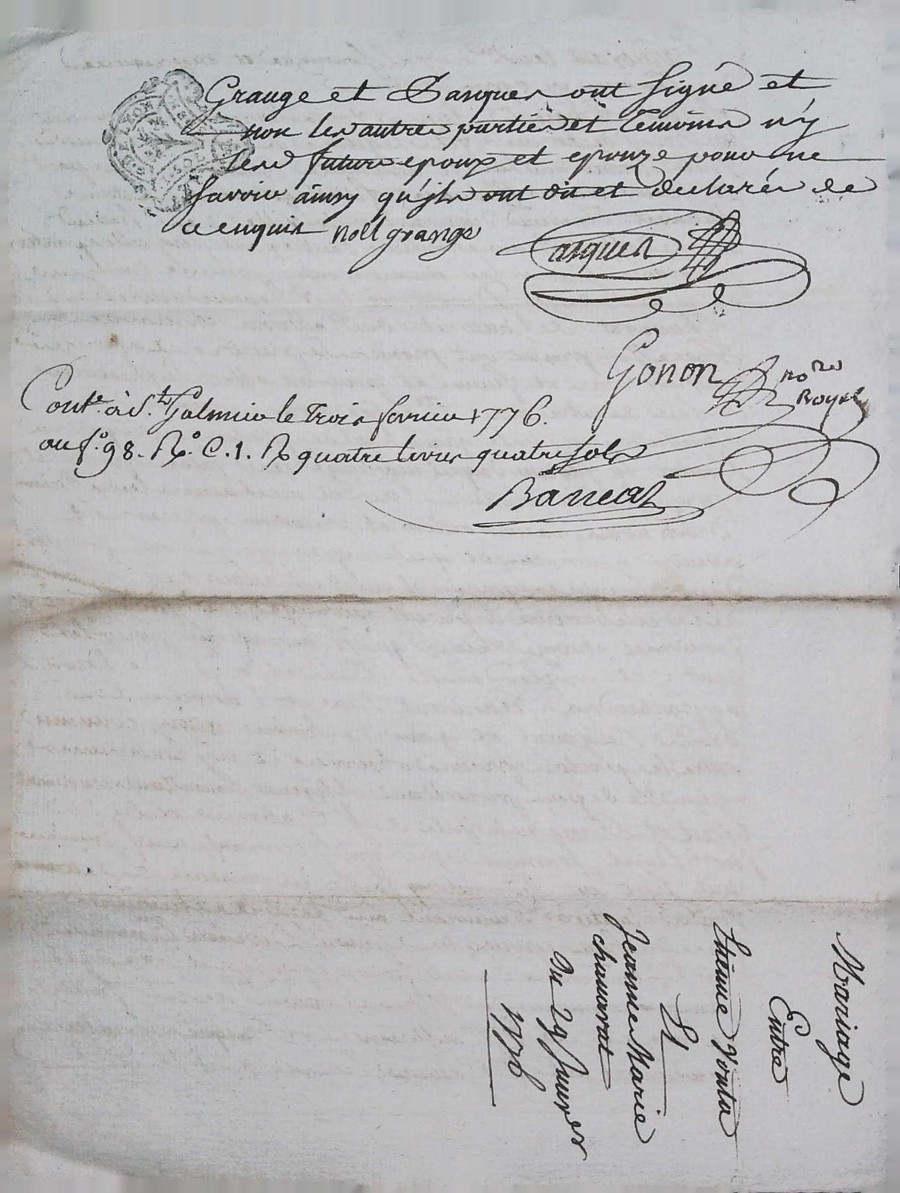 Grange et Jasques ont signé et
non les autres parties et temoins n'y
les futurs epoux et epouze pour ne
savoir ainsy qu'ils ont dit et declarés de
ce enquis noël grange
Jasques
Gonon no.re Royal
Cont.e à S.t Galmier le trois fevrier 1776.
au f.o 98. R.o C. 1. R quatre livres quatre sols
Barreat
Mariage
Entre
Etienne
Et
Jeanne Marie
chauvrat
Du 29 Janvier
1776